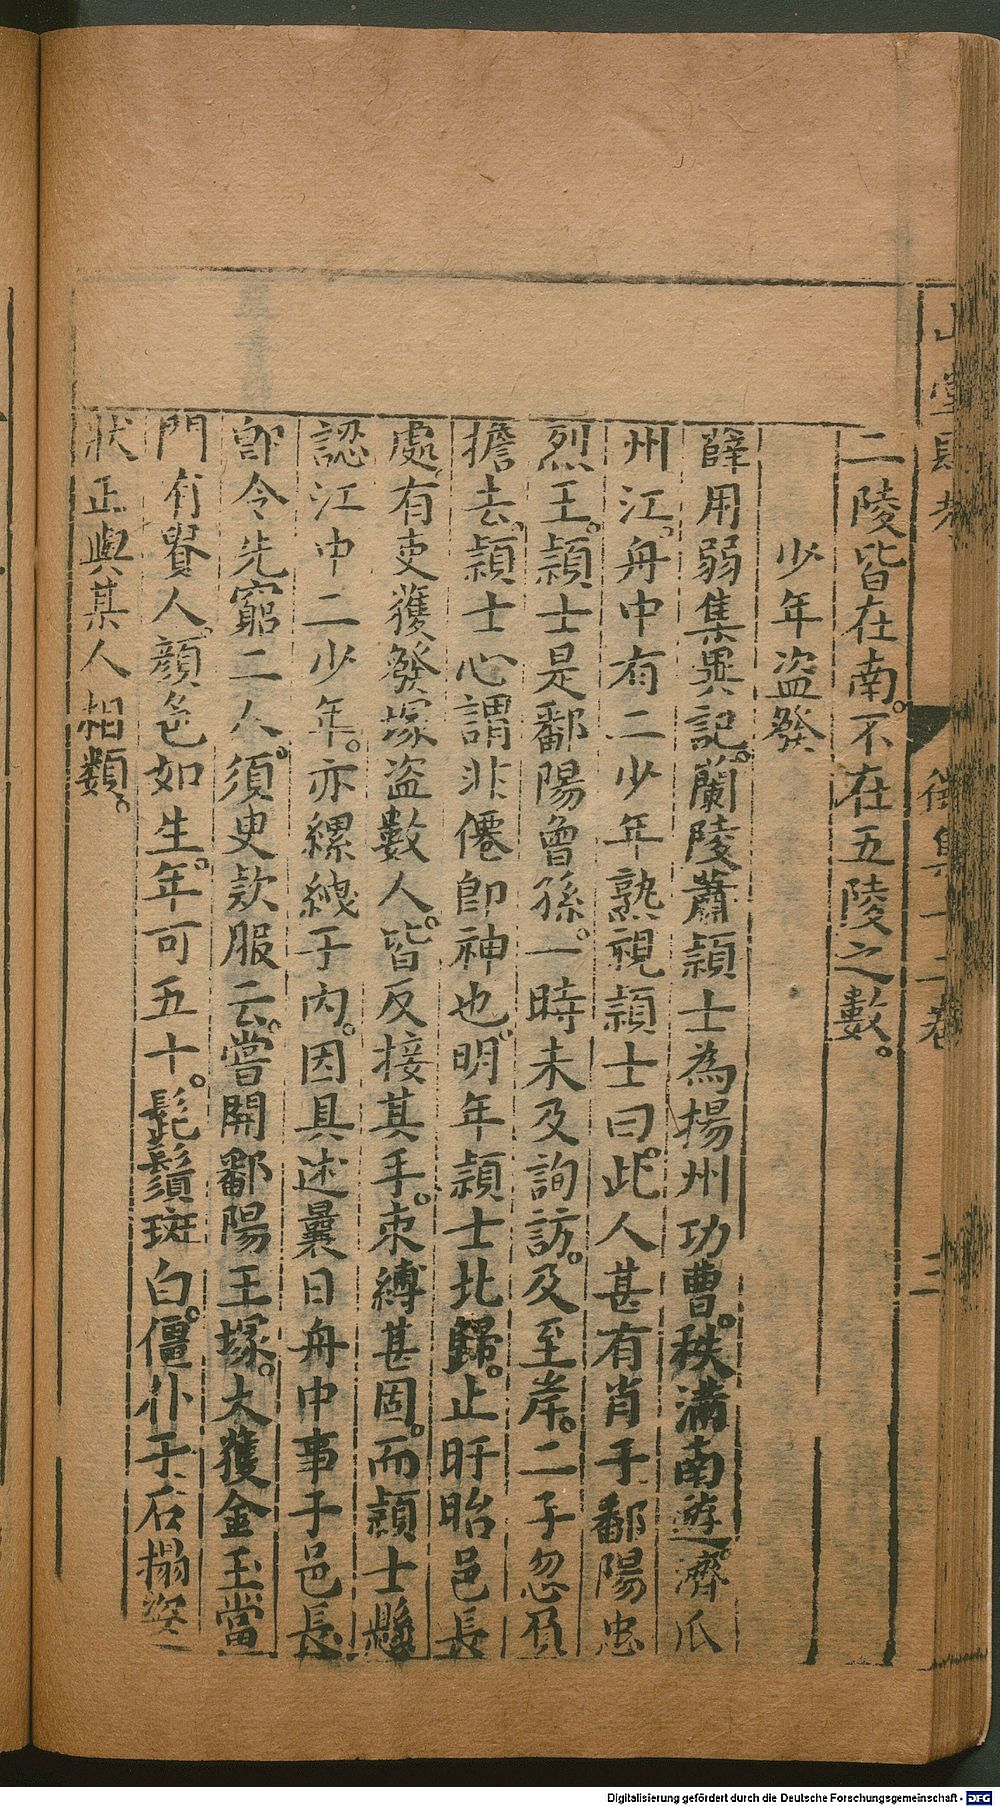 山堂肆考
徵集十二卷
三
二陵皆在南。不在五陵之數。
少年盜發
薛用弱集異記。蘭陵蕭頴士為揚州功曹。秩滿南遊。濟瓜
州江。舟中有二少年熟視頴士曰。此人甚有肖于鄱陽忠
烈王。頴士是鄱陽曾孫。一時未及詢訪。及至岸。二子忽負
擔去。頴士心謂非僊卽神也。明年頴士北歸。止盱眙邑長
處。有吏獲發塚盜數人。皆反接其手。束縛甚固。而頴士懸
認江中二少年。亦縲絏于內。因具述曩日舟中事于邑長
卽令先窮二人。須臾款服云。嘗開鄱陽王塚。大獲金玉當
門有貴人。顏色如生。年可五十。髭鬚斑白。僵仆于石搨姿
狀正與其人相類。
Digitalisierung gefördert durch die Deutsche Forschungsgemeinschaft - DFG